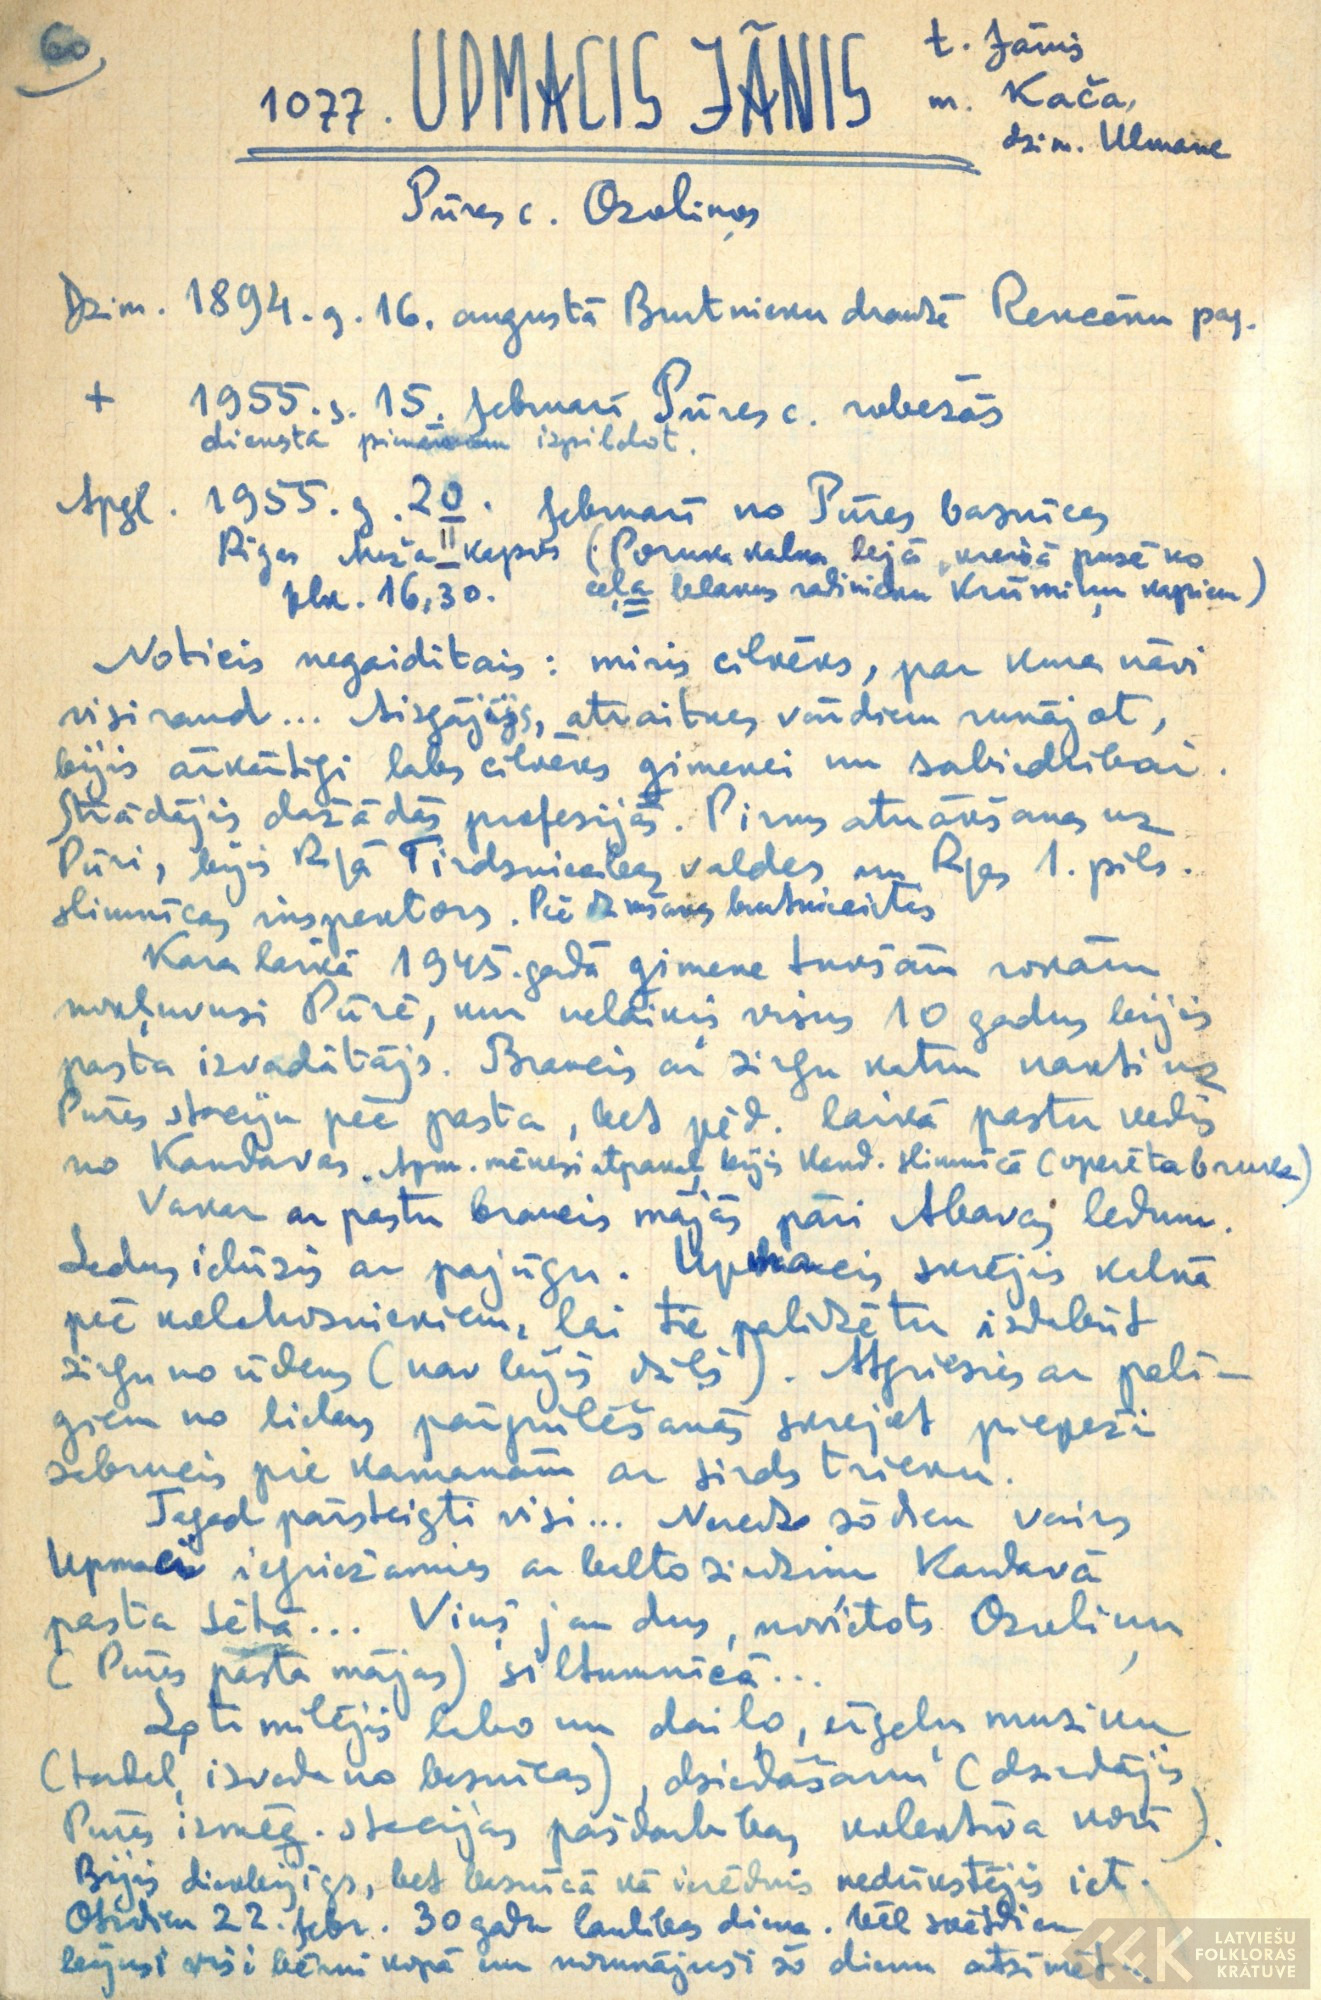 60
1077. UPMACIS JĀNIS
t. Jānis
m. Kača,
dzim. Ulmane
Pūres c. Ozoliņos
Dzim. 1894. g. 16. augustā Burtnieku draudzē Rencēnu pag.
+ 1955. g. 15. februārī Pūres c. robežās
dienesta pienākum izpildot.
Apgl. 1955. g. 20. februārī no Pūres baznīcas
II
Rīgas Meža kapos (Poruka kalna lejā, kreisā pusē no
plk. 16,30. ceļa blakus radinieku Krūmiņu kapiem)
Noticis negaidītais: miris cilvēks, par kura nāvi
visi raud... Aizgājējs, atraitnes vārdiem runājot,
bijis ārkārtīgi labs cilvēks ģimenei un sabiedrībai.
Strādājis dažādās profesijās. Pirms atnākšanas uz
Pūri, bijis Rīgā Tirdzniecības valdes un Rīgas 1. pils.
slimnīcas inspektors. Pēc dzimšanas burtniecietis
Kara laikā 1945. gadā ģimene tukšām rokām
nokļuvusi Pūrē, kur nelaiķis visus 10 gadus bijis
pasta izvadātājs. Braucis ar zirgu katru nakti uz
Pūres staciju pēc pasta, bet pēd. laikā pastu vedis
no Kandavas. Apm. mēnesi atpakaļ bijis Kand. slimnīcā (operēta bruka)
Vakar ar pastu braucis mājās pāri Abavas ledum.
Ledus ielūzis ar pajūgu. Upmacis skrējis kalnā
pēc kolchozniekiem, lai tie palīdzētu izdabūt
zirgu no ūdens (nav bijis dziļš). Atgriezies ar palī-
giem no lielas pārpūlēšanās skrejot piepeži
sabrucis pie kamanām ar sirds trieku.
Tagad pārsteigti visi... Neredz šodien vairs
Upmaci iegriežamies ar balto zirdziņu Kandavā
pasta sētā... Viņš jau dus, novietots Ozoliņu
(Pūres pasta mājas) siltumnīcā...
Ļoti mīlējis labo un daiļo, ērģeļu muziku
(tādēļ izvada no baznīcas), dziedāšanu (dziedājis
Pūres izmēģ. stacijas pašdarbības kolektīva korī).
Bijis dievbijīgs, bet baznīcā kā ierēdnis nedrīkstējis iet.
Otrdien 22. febr. 30 gadu laulības diena. Vēl svētdien
bijuši visi bērni kopā un norunājuši šo dienu atzīmēt.
LATVIEŠU
FOLKLORAS
KRĀTUVE